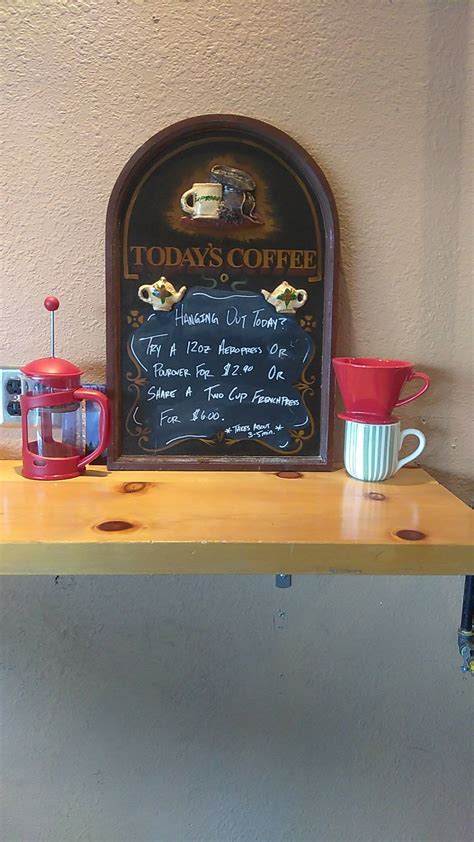 TODAY'S COFFEE
HANGING OUT TODAY?
TRY A 12OZ AEROPRESS OR
POUROVER FOR $2.90 OR
SHARE A TWO CUP FRENCHPRESS
FOR $6.00.
*TAKES ABOUT
3-5 MIN.*